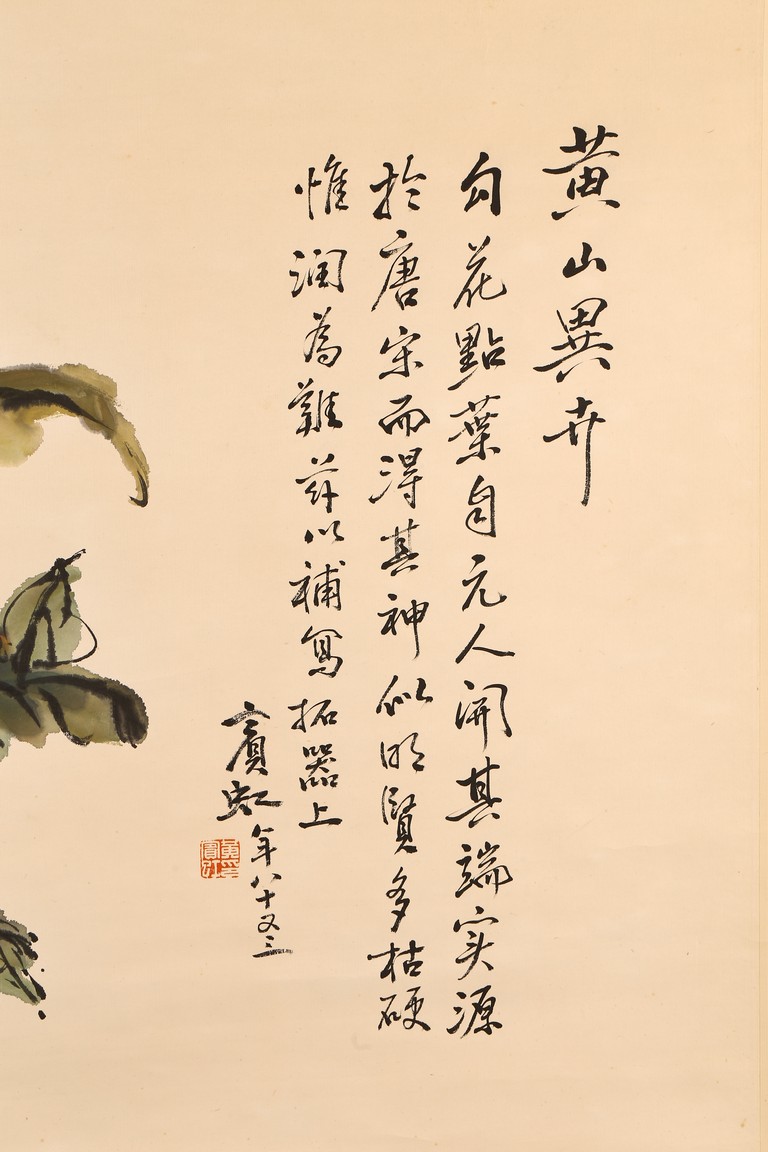 黄山異卉
勾花點葉自元人開其端实源
於唐宋而得其神似明賢多枯硬
惟润為難茲以補寫拓器上
賓虹年八十又三